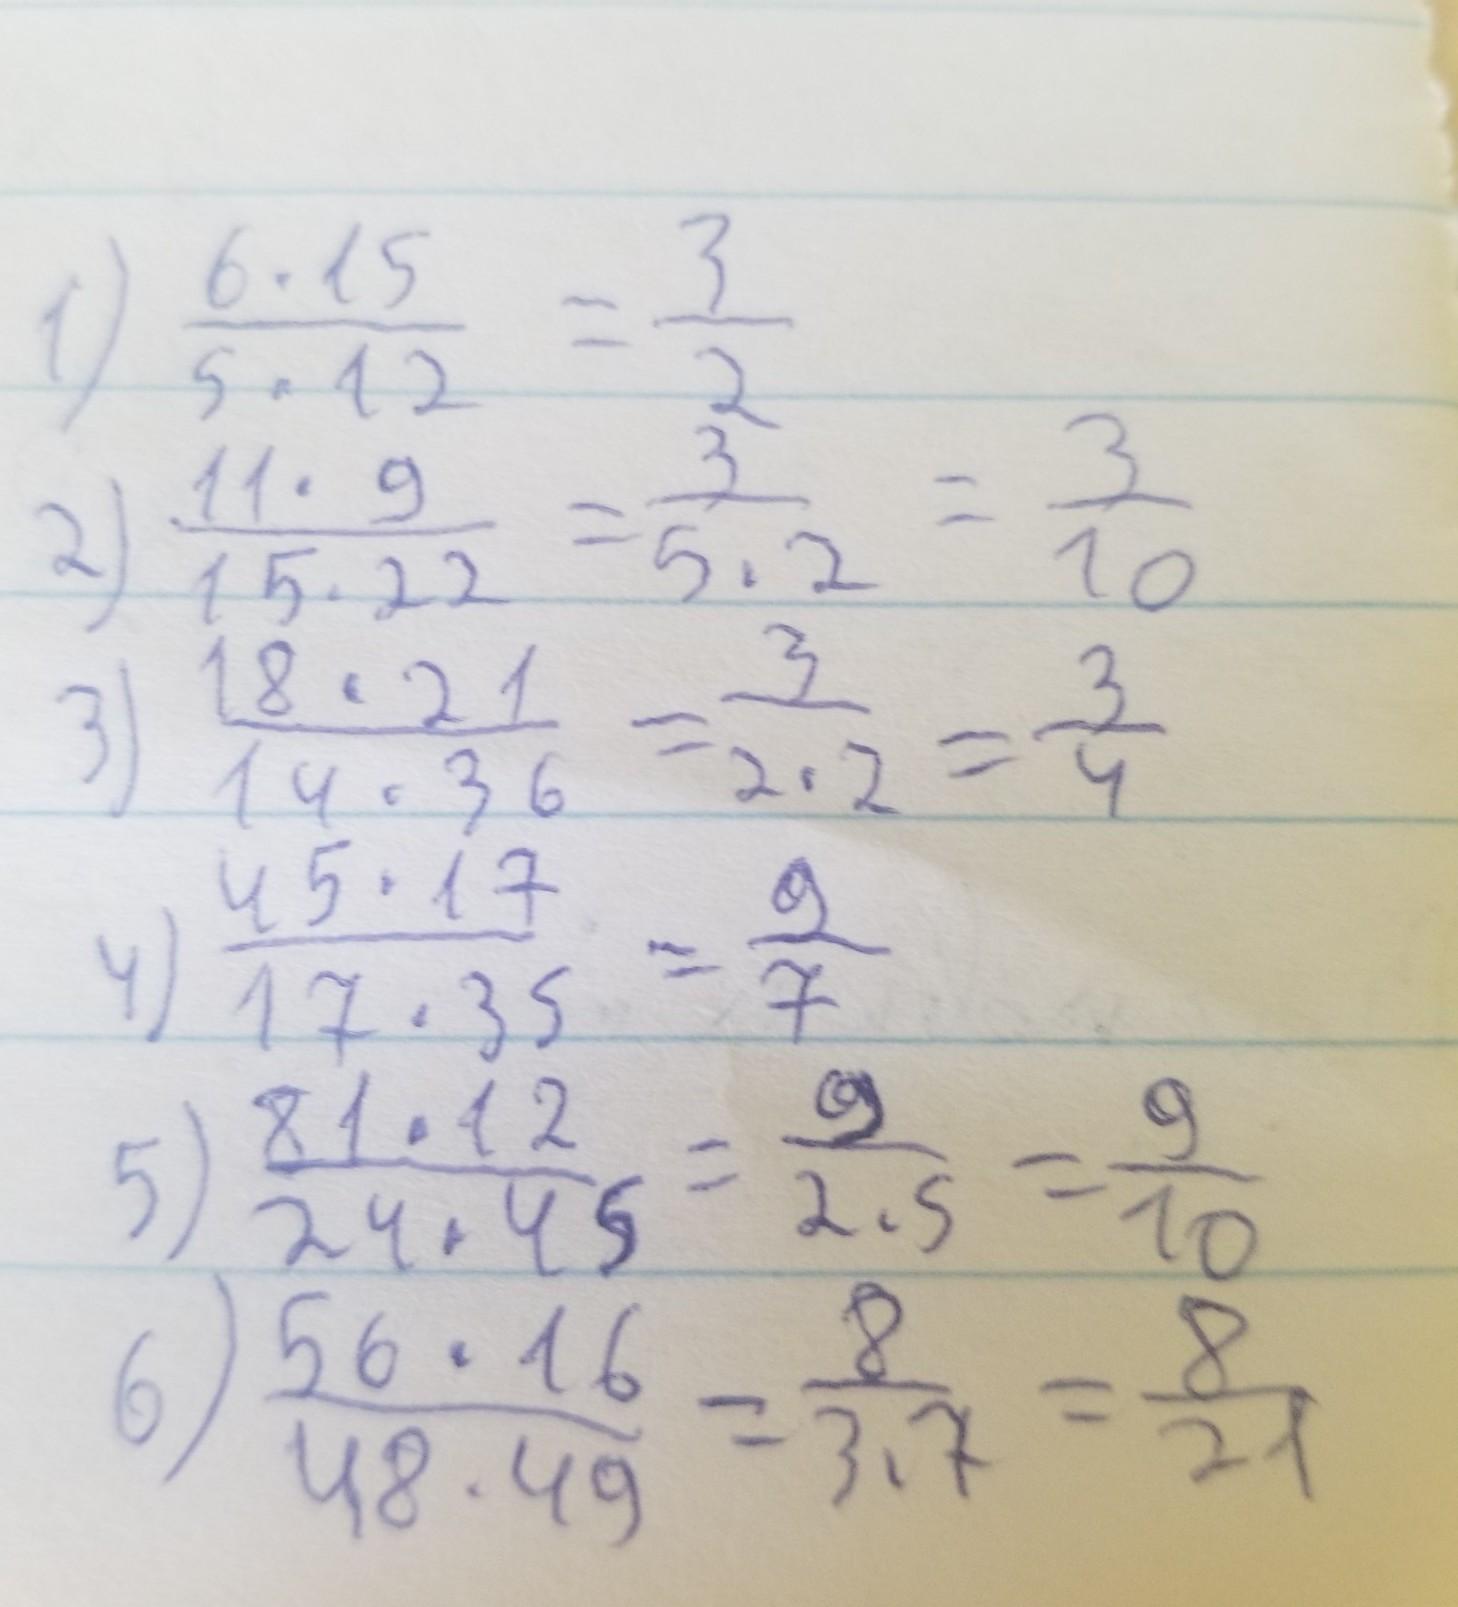 1) 6·15/5·12 = 3/2
2) 11·9/15·22 = 3/5·2 = 3/10
3) 18·21/14·36 = 3/2·2 = 3/4
4) 45·17/17·35 = 9/7
5) 81·12/24·45 = 9/2·5 = 9/10
6) 56·16/48·49 = 8/3·7 = 8/21